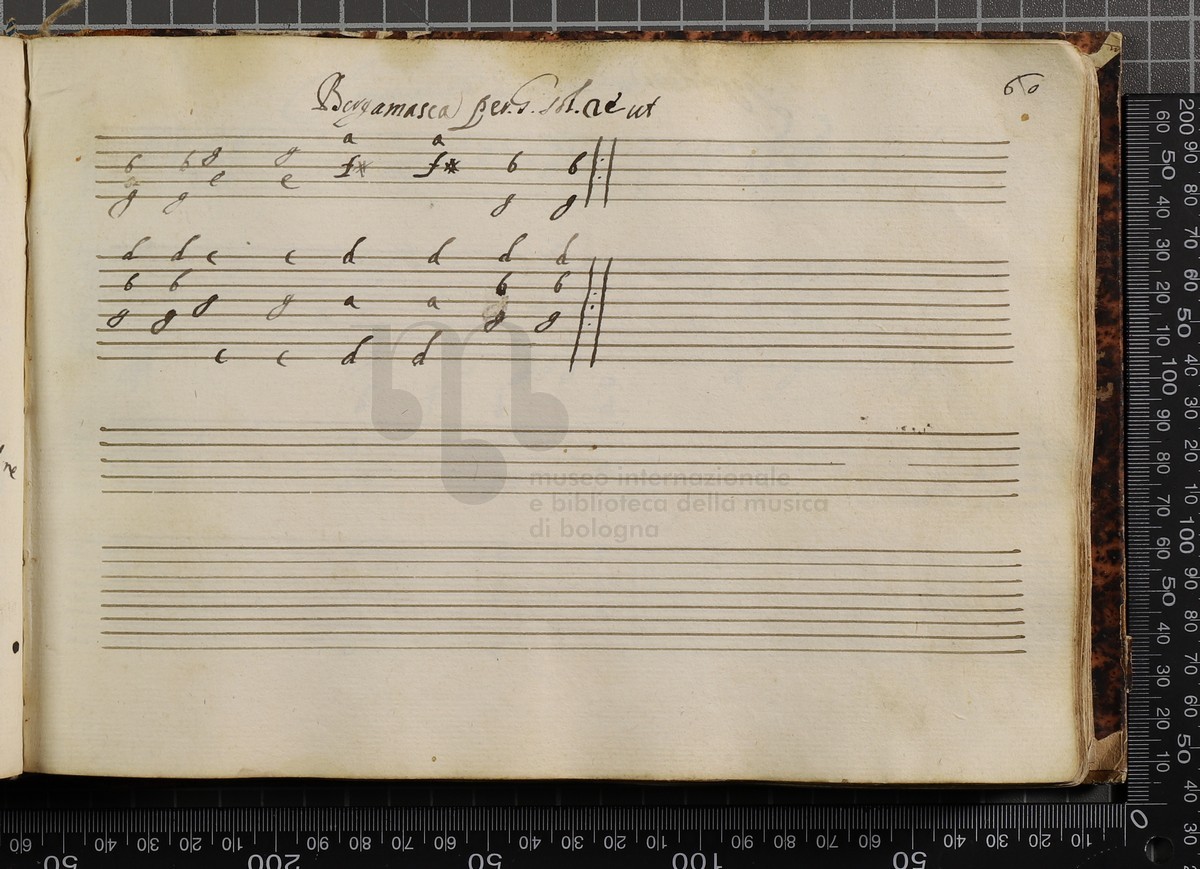 60
Bergamasca per. G. sol. re ut
a a
b b g g f* f* b b
e e
g g g g
d d c c d d d d
b b b b
g g g g a a g g
c c d d
ne
museo internazionale
e biblioteca della musica
di bologna
60 50 40 30 20 10 100 90 80 70 60 50 40 30 20 10
200 90 80 70 60 50 40 30 20 10 100 90 80 70 60 50 40 30
60 50 40 30 20 10 200 90 80 70 60 50 40 30 20 10 100 90 80 70 60 50 40 30 20 10 0